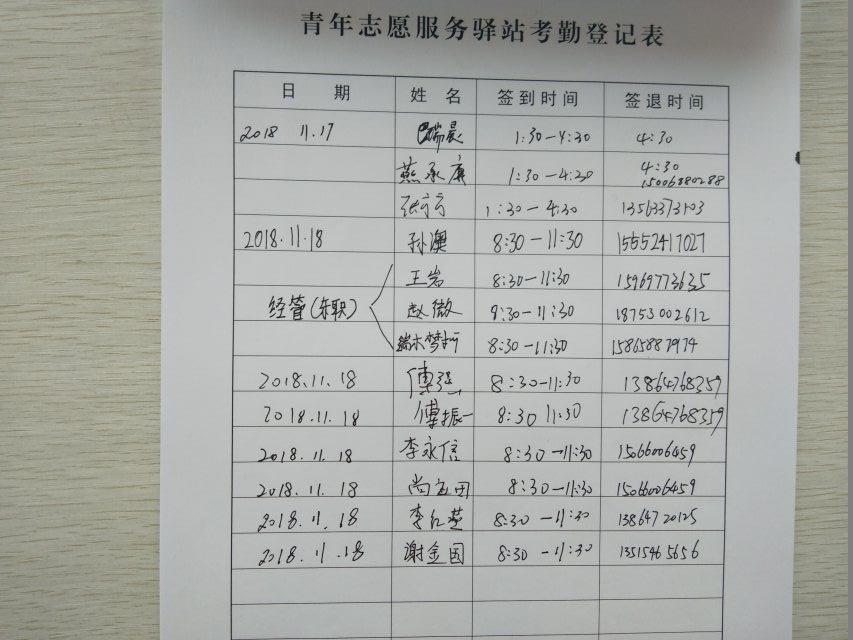 青年志愿服务驿站考勤登记表
日期 姓名 签到时间 签退时间
2018 11.17 瑞晨 1:30-4:30 4:30
燕承广 1:30-4:20 4:30
15006880288
1:30-4:30 13563373103
2018.11.18 孙澳 8:30-11:30 15652417027
王岩 8:30-11:30 15969773635
经管(东职) 赵微 9:30-11:30 18753002612
端木梦 8:30-11:30 15865887974
2018.11.18 傅强 8:30-11:30 13864768359
2018.11.18 傅振一 8:30 11:30 13864768359
2018.11.18 李永信 8:30-11:30 15066006459
2018.11.18 尚 8:30-11:30 15066006459
2018.11.18 李红莲 8:30-11:30 13864720125
2018.11.18 谢金国 8:30-11:30 13515465656